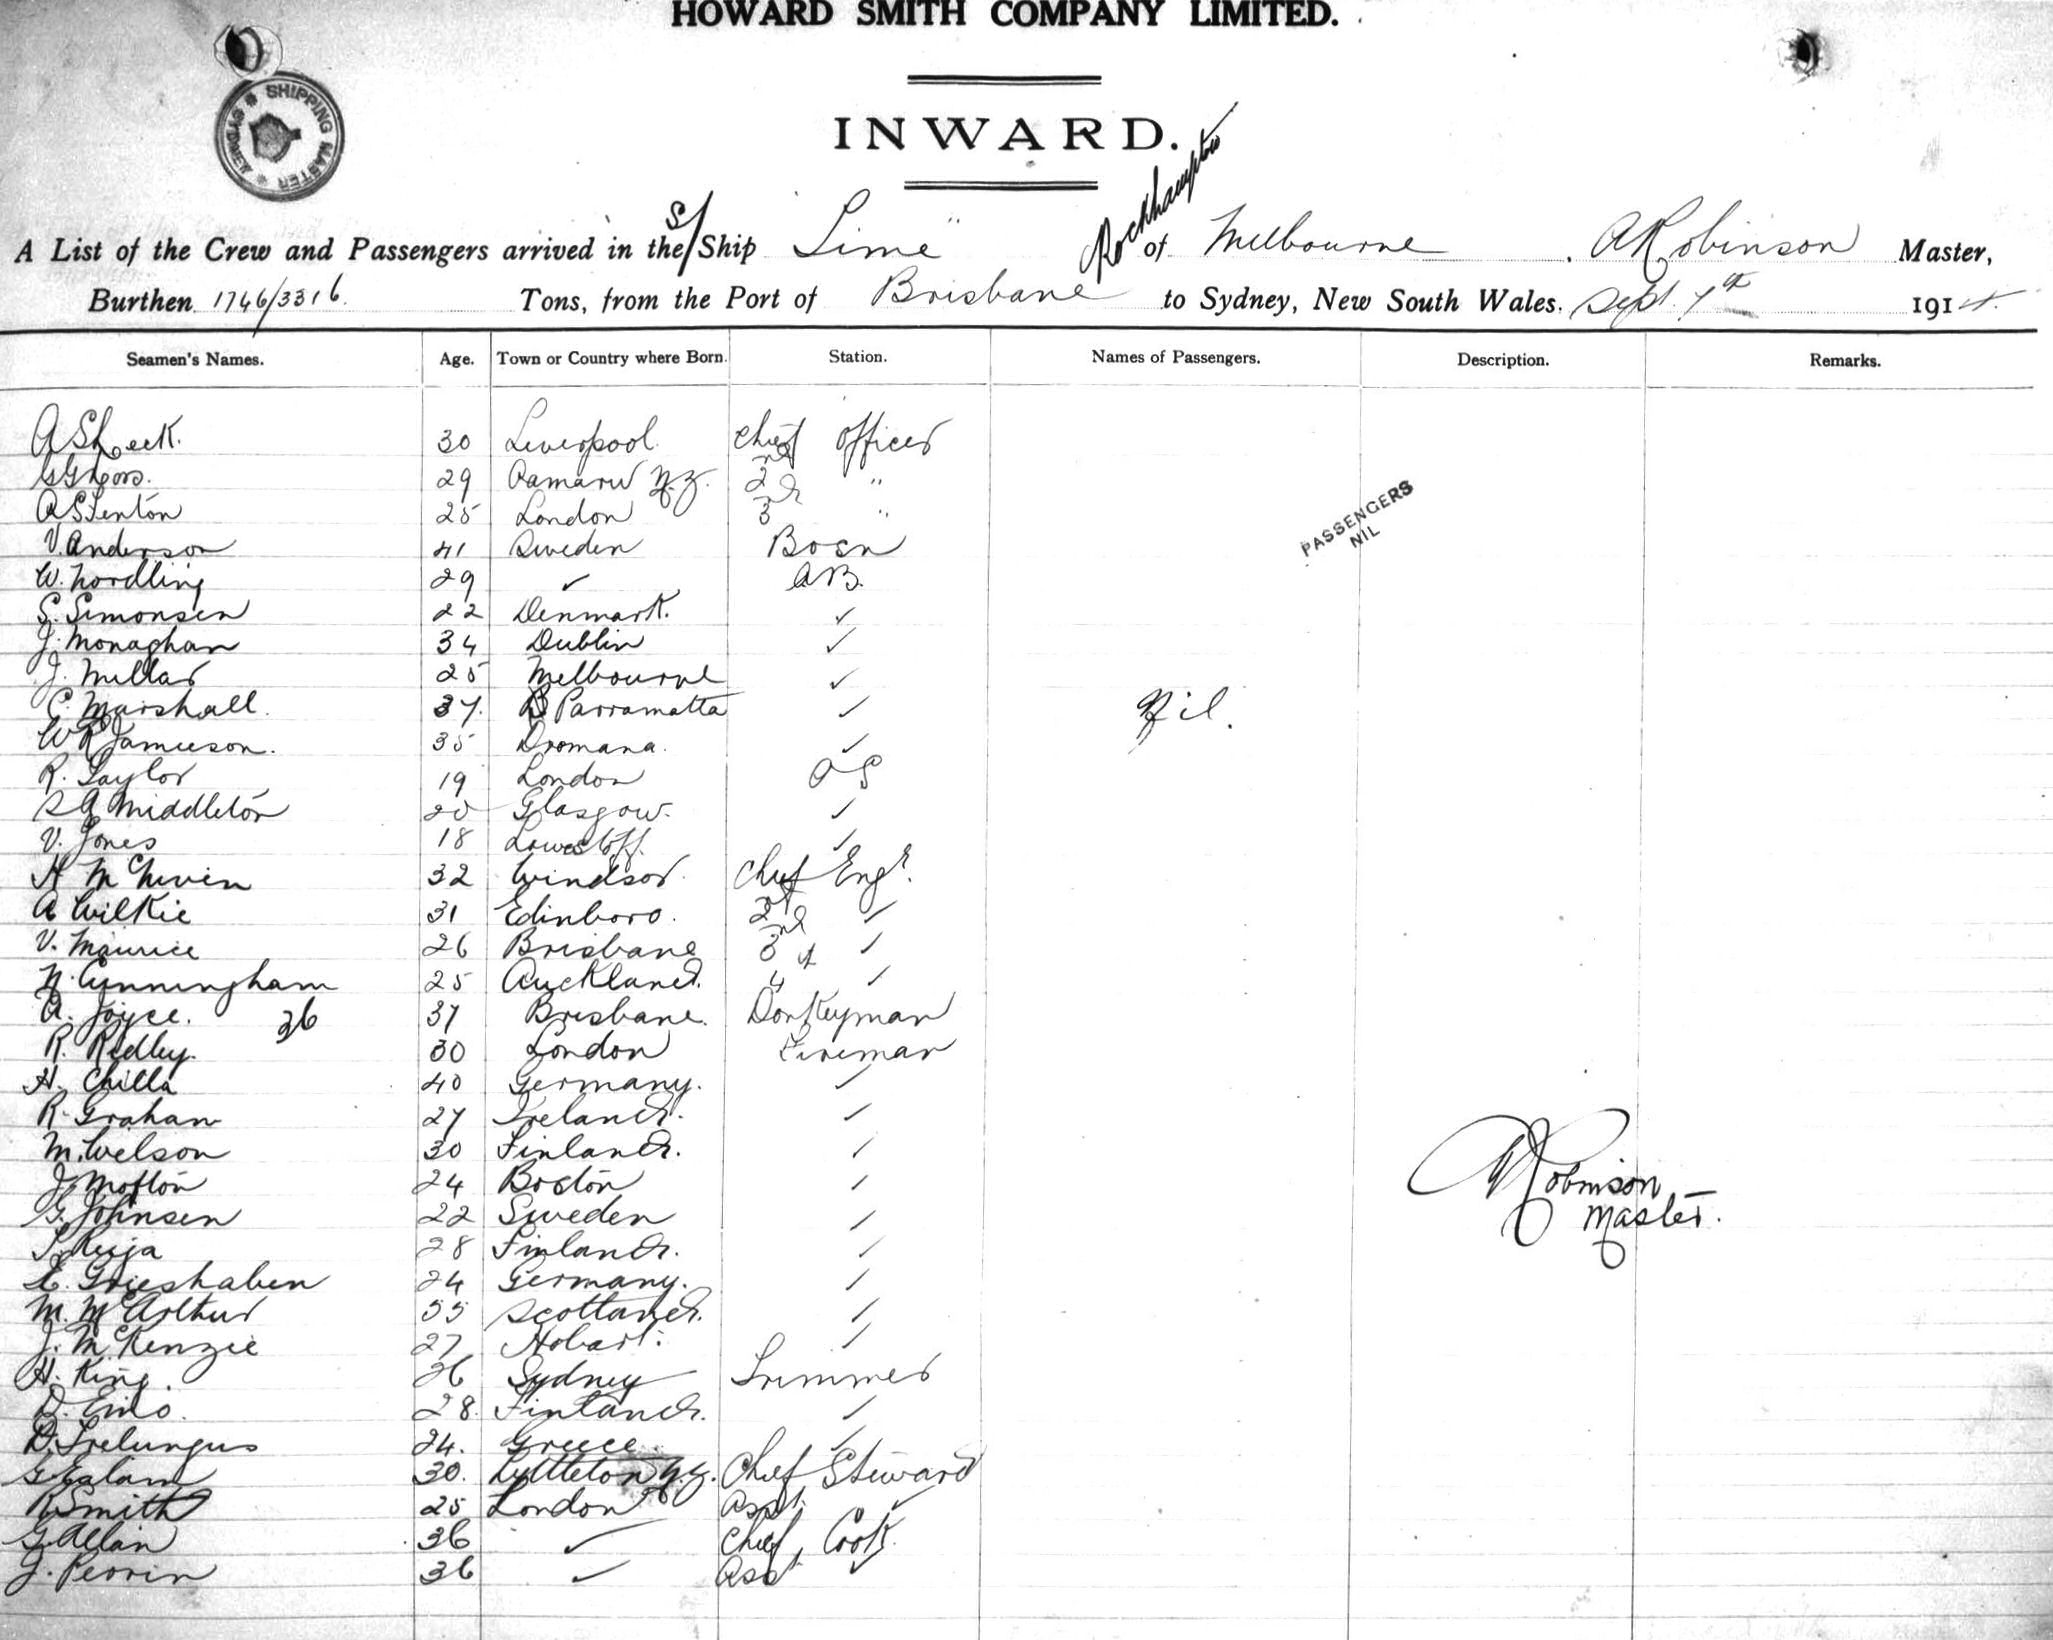 HOWARD SMITH COMPANY LIMITED.
SHIPPING MASTER * SYDNEY *
INWARD.
Rockhampton
A List of the Crew and Passengers arrived in the S/Ship "Time" of Melbourne, A Robinson Master,
Burthen 1746/3316 Tons, from the Port of Brisbane to Sydney, New South Wales. Sept. 7th 1914.
Seamen's Names. Age. Town or Country where Born. Station. Names of Passengers. Description. Remarks.
30 Liverpool. Chief Officer
29 Oamaru N.Z. 2nd "
A Stenton 25 London 3rd "
PASSENGERS NIL
V. Anderson 41 Sweden Bosn
W. Nordling 29 ✓ AB.
S. Simonsen 22 Denmark. ✓
J. Monaghan 34 Dublin ✓
J. Millar 25 Melbourne ✓
C. Marshall. 37. Parramatta ✓ Nil.
W R Jamieson. 35 Dromana. ✓
R. Taylor 19 London OS
S A Middleton 20 Glasgow. ✓
V. Jones 18 Lowestoff. ✓
H McNiven 32 Windsor. Chief Engr.
A Wilkie 31 Edinboro. 2nd ✓
V. Maurice 26 Brisbane 3rd ✓
N. Cunningham 25 Auckland. 4 ✓
A. Joyce. 36 37 Brisbane. Donkeyman
R. Ridley. 30 London Fireman
H. Chilla 40 Germany. ✓
R. Graham 27 Ireland. ✓
M. Welson 30 Finland. ✓
J. Mofton 24 Boston ✓
A Robinson Master.
G. Johnsen 22 Sweden ✓
28 Finland. ✓
E. Grieshaben 24 Germany. ✓
M. McArthur 55 Scotland. ✓
J. McKenzie 27 Hobart. ✓
H. King. 26 Sydney Trimmer
D. Eino. 28. Finland. ✓
24. Greece. ✓
G. Ealam 30. Lyttleton N.Z. Chief Steward
R Smith 25 London Asst. ✓
G. Allan 36 ✓ Chief Cook.
J. Perrin 36 ✓ Asst ✓